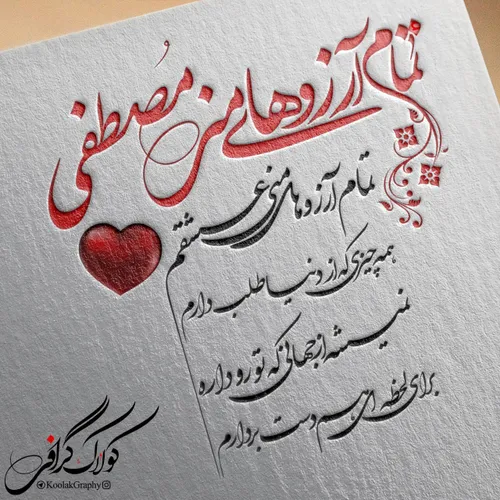 تمام آرزوهای من مُصطفی
تمام آرزوهای منی عشقم
همه چیزی که از دنیا طلب دارم
نمیشه از جهانی که تورو داره
برای لحظه ای هم دست بردارم
کولاک گرافی
KoolakGraphy